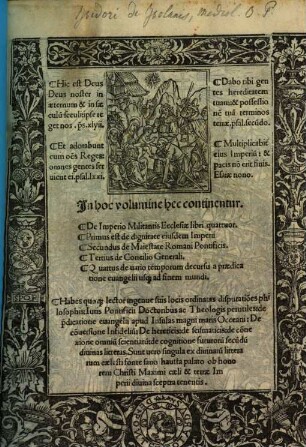 Isidori de Isolanis, mediol. O. P.
¶Hic est Deus
Deus noster in
æternum & in sæ
culũ sæculi: ipse re
get nos. ps. xlvii.
¶Et adorabunt
eum oẽs Reges:
omnes gentes ser
uient ei. psal. lxxi.
¶Dabo tibi gen
tes hereditatem
tuam: & possessio
nẽ tuã terminos
terræ. psal. secũdo.
¶Multiplicabit̃
eius Imperiũ: &
pacis nõ erit finis.
Esaiæ nono.
In hoc volumine hec continentur.
¶De Imperio Militantis Ecclesiæ libri quattuor.
¶Primus est de dignitate eiusdem Imperii
¶Secundus de Maiestate Romani Pontificis.
¶Tertius de Consilio Generali.
¶Quartus de uario temporum decursu a prædica
tione euangelii usq; ad finem mundi.
¶Habes quoq; lector ingenue suis locis ordinatas disputatiões phi
losophis: Iuris Pontificii Doctoribus ac Theologis
euangelii apud Insulas magni maris Oceani: De
cõuersione Infidelium: De hereticis: de scismaticis: de
omnimoda scientia: de cognitione futurorũ secũdũ
diuinas litteras. Sunt uero singula ex diuinarũ littera
rum cælesti fonte
rem Christi Maximi cæli & terræ Im
perii diuina sceptra tenentis.